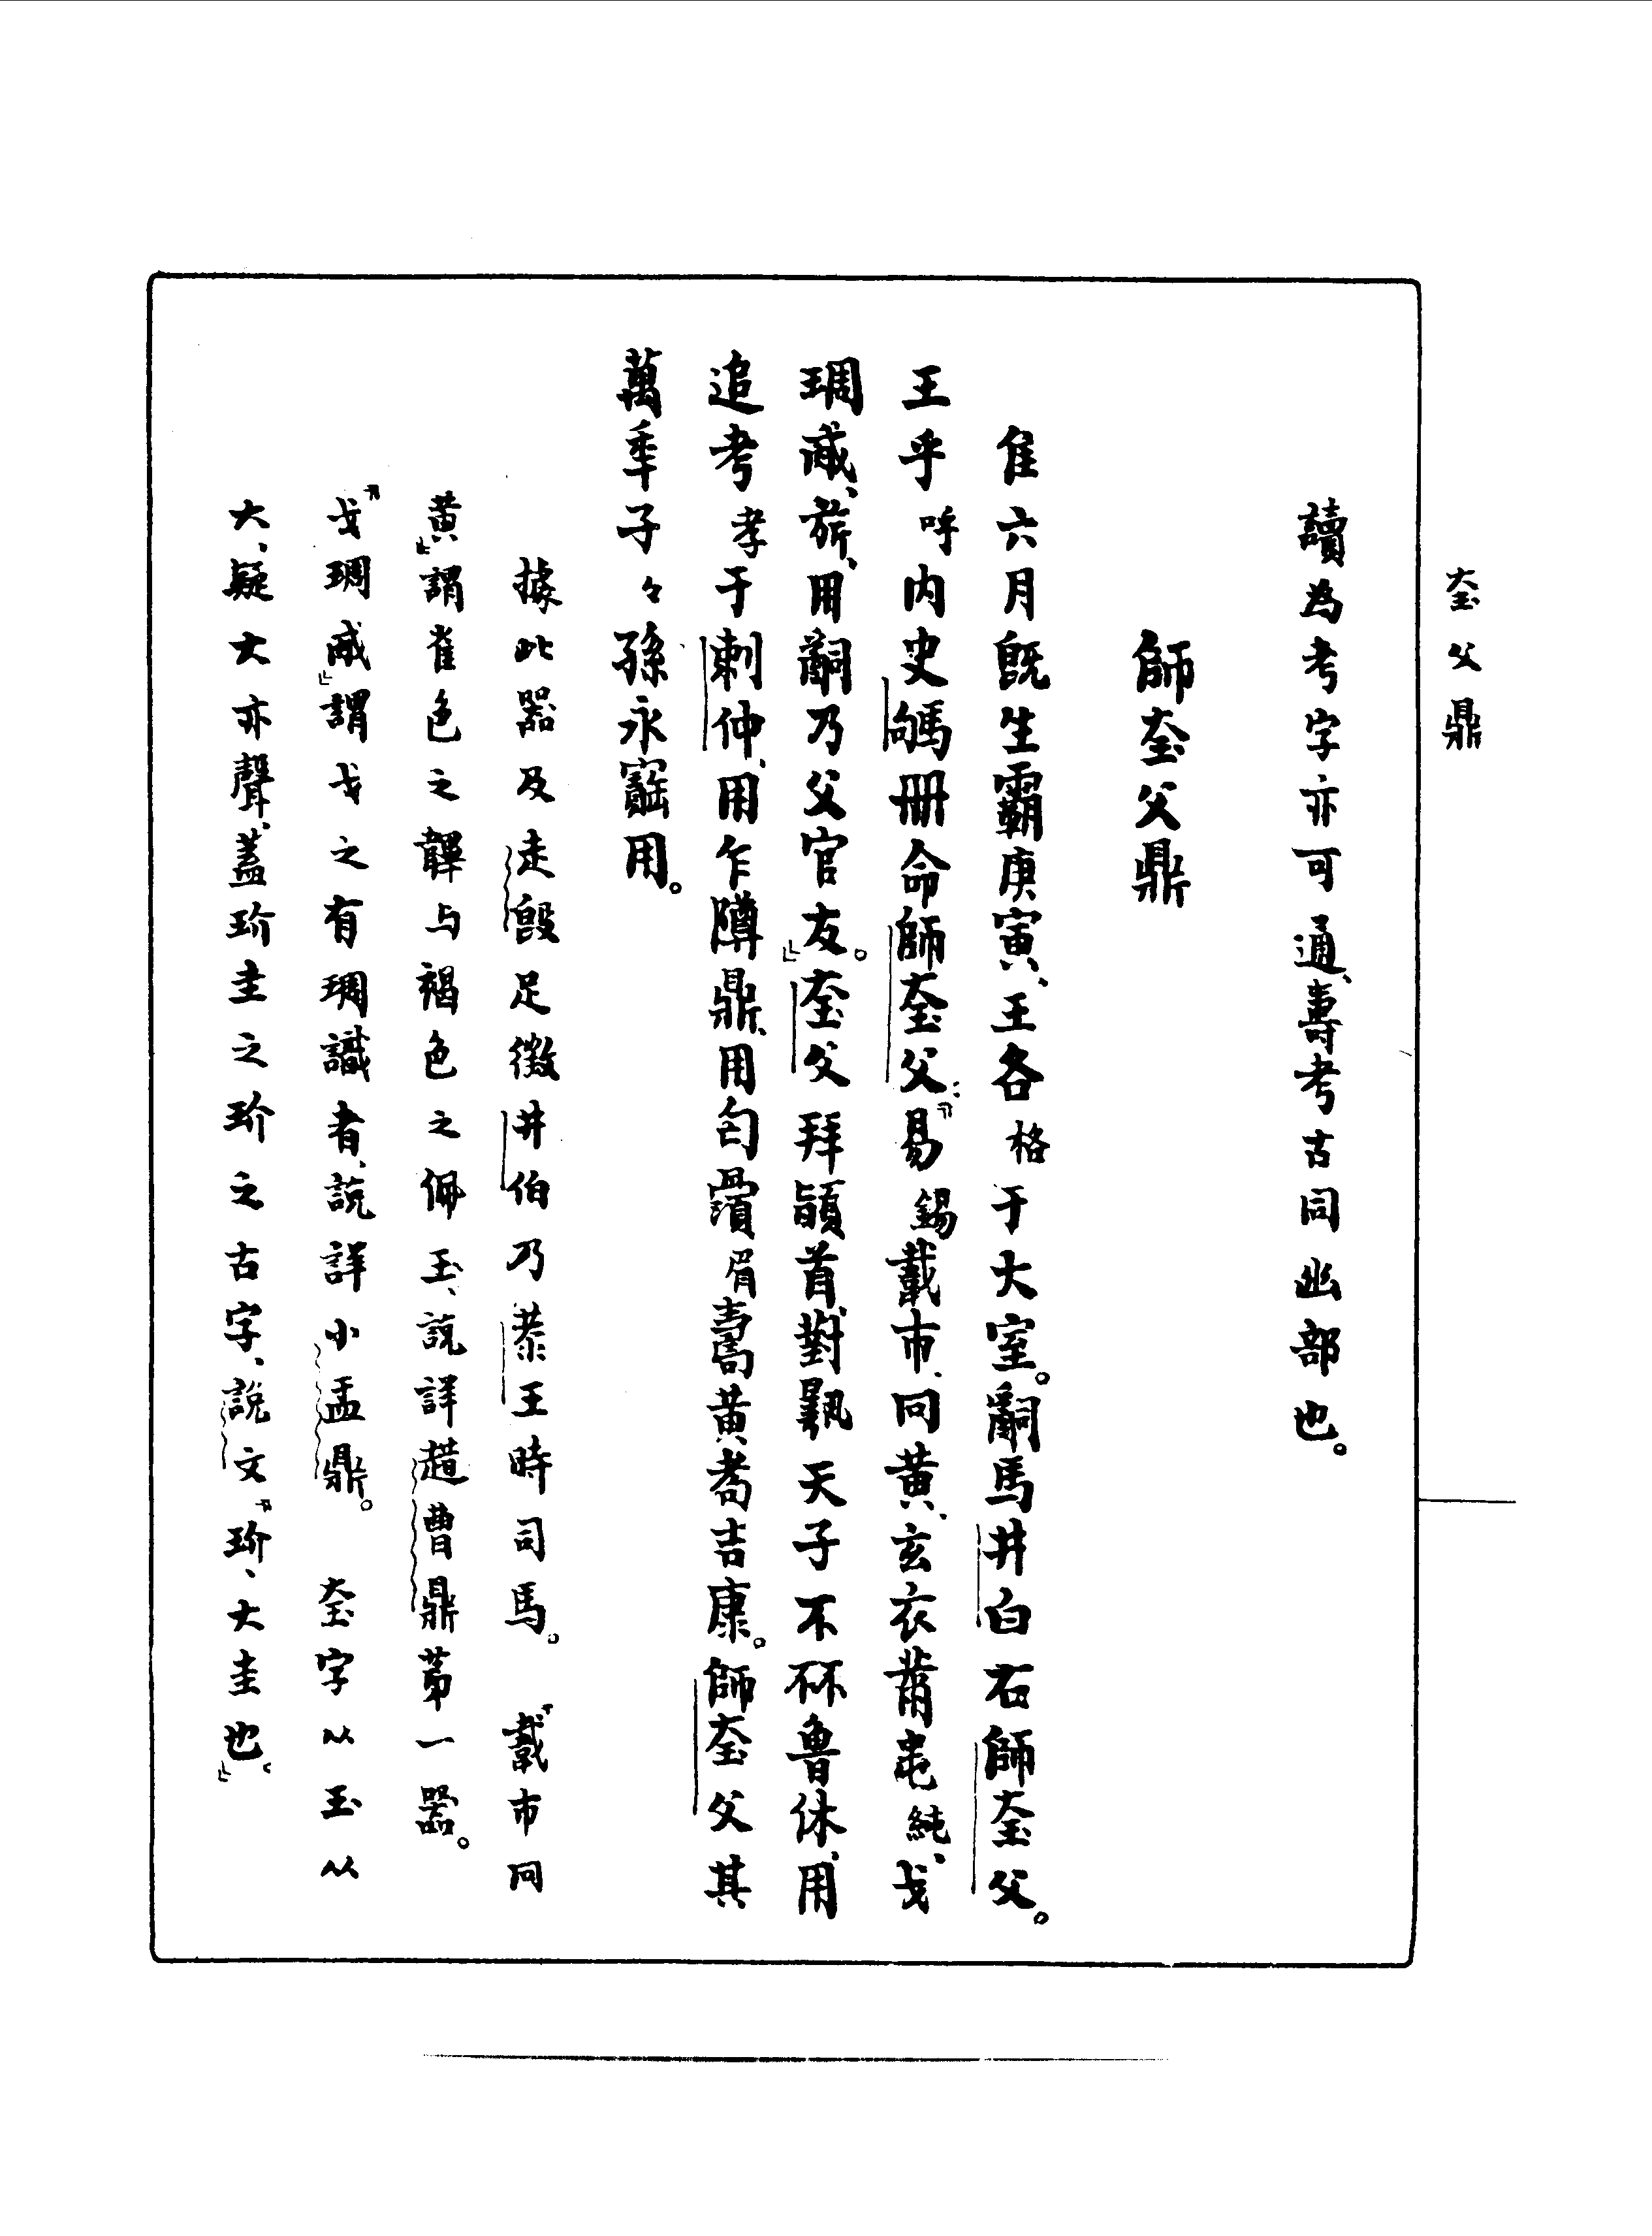 奎父鼎
讀為考字亦可通、壽考古同幽部也。
師奎父鼎
隹六月既生霸庚寅、王各格于大室。嗣馬井白右師奎父。
王乎呼內史冊命師奎父：『易錫市、同黃、玄衣黹黽純、戈
琱㦸、旂、用嗣乃父官友。』奎父拜𩒨首、對天子不㔻魯休、用
追考孝于剌仲、用乍隣鼎、用匄眉壽黃耇吉康。師奎父其
萬年子々孫永寶用。
據此器及走𣪘足徵井伯乃恭王時司馬。『市同
黃』謂雀色之韠与褐色之佩玉、說詳趞曹鼎苐一器。
『戈琱㦸』謂戈之有琱識者、說詳小盂鼎。奎字从玉从
大、疑大亦聲、蓋玠圭之玠之古字、說文『玠、大圭也。』